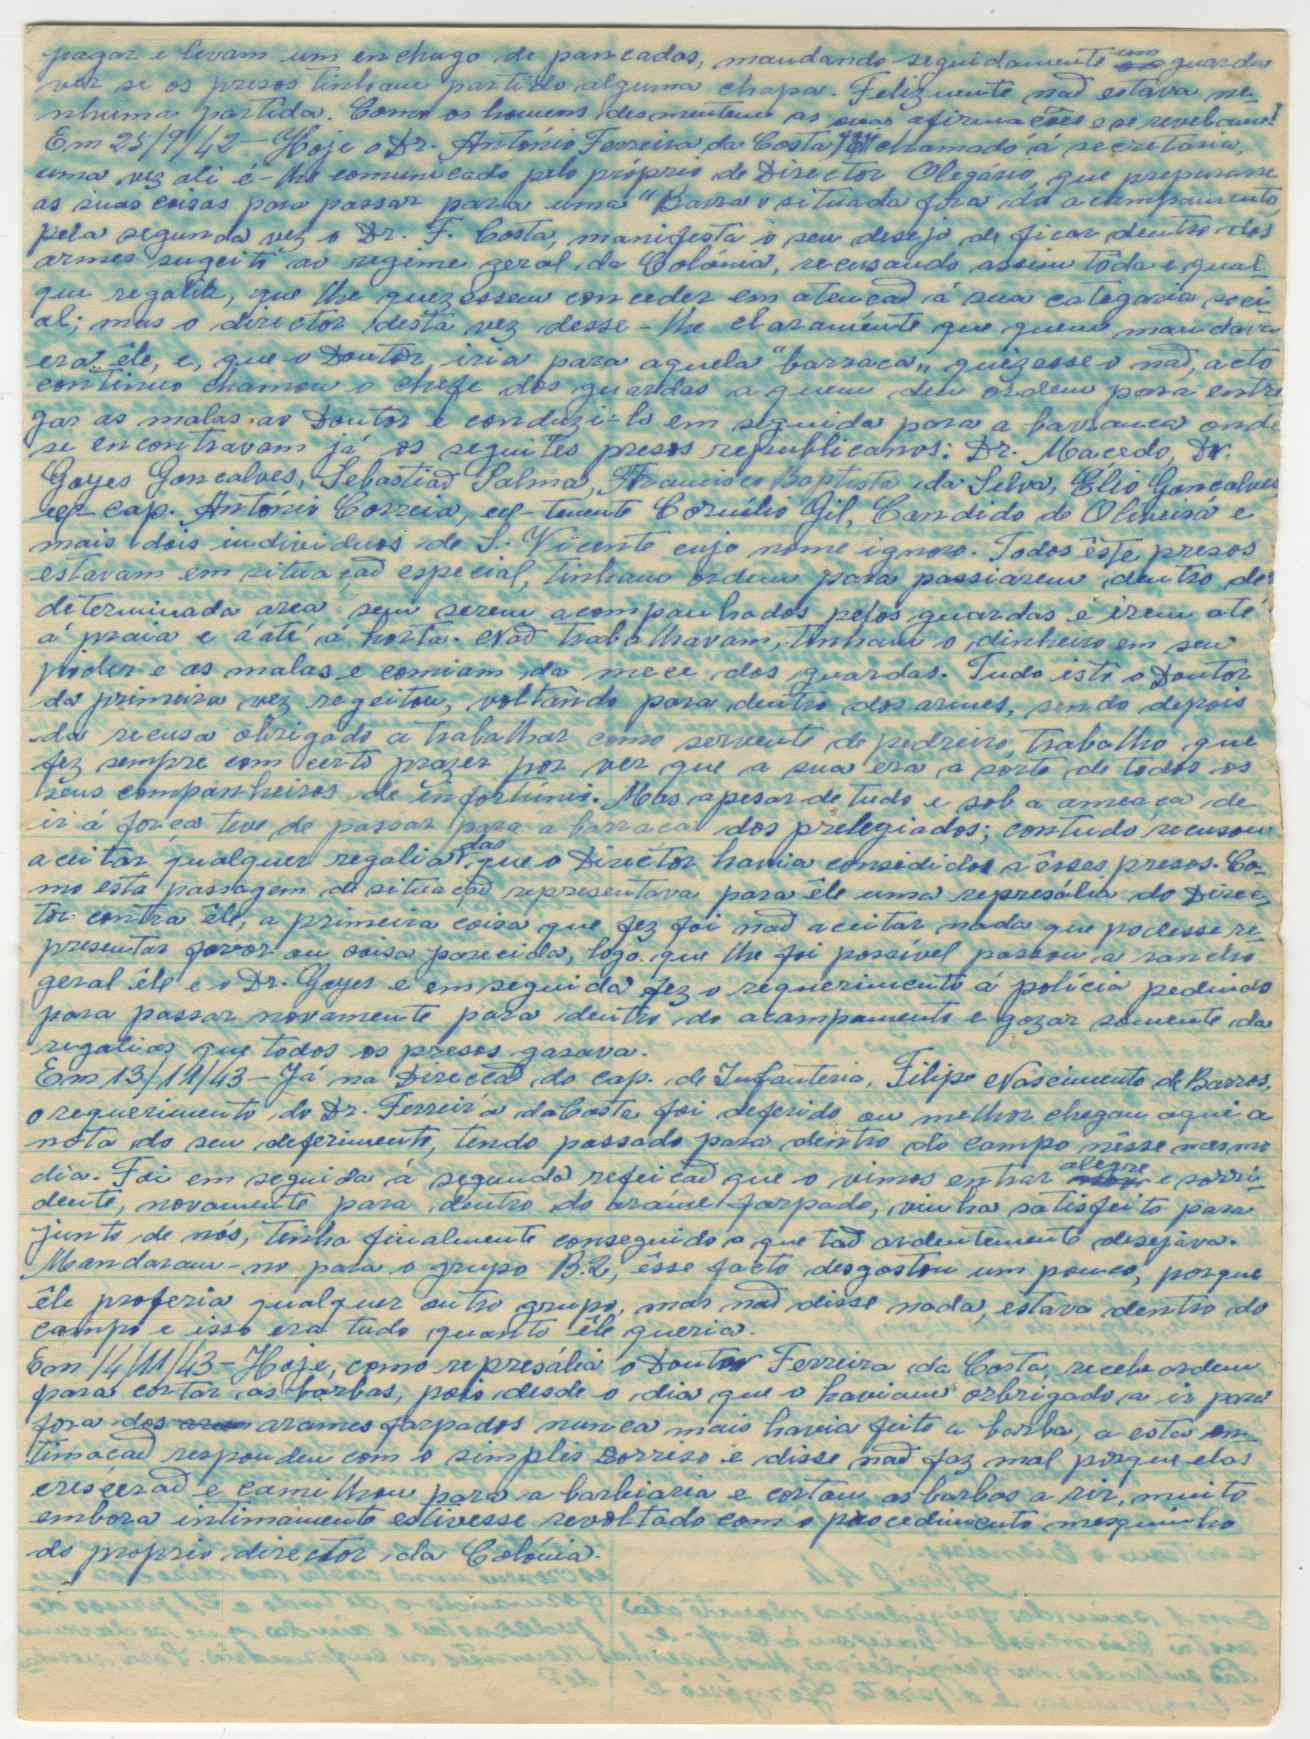 pagar e levam um enchugo de pancadas, mandando seguidamente um guarda
ver se os presos tinham partido alguma chapa. Felizmente nað estava ne-
nhuma partida. Como os homens desmentem as suas afirmações e se revelam!
Em 25/9/42 - Hoje o Dr. António Ferreira da Costa, foi chamado á secretária,
uma vez ali é-lhe comunicado pelo próprio de Director Olegário, que preparasse
as suas coisas para passar para uma "Barra" situada fora do acampamento,
pela segunda vez o Dr. F. Costa, manifesta o seu desejo de ficar dentro dos
armes sugeito ao regime geral da Colónia, recusando assem tôda e qual-
quer regalia, que lhe quezessem conceder em atençað á sua categoria soci-
al; mas o director desta vez desse-lhe claraménte que quem mandava
era êle, e, que o Doutor iria para aquela "barraca", quezesse-o nað, acto
continuo chamou o chefe dos guardas a quem deu ordem para entre
gar as malas ao Doutor e conduzi-lo em seguida para a barraca onde
se encontravam já os seguites presos republicanos: Dr. Macedo, Dr.
Goyes Goncalves, Sebastiað Palma, Francisco Baptista da Selva, Élio Gonçalves
cap. António Correia, tenente Cornélio Gil, Candido de Oliveira e
mais dois individuos de S. Vicente cujo nome ignoro. Todos êste presos
estavam em situaçað especial, tinham ordem para passiarem dentro de
determinada area sem serem acompanhados pelos guardas e irem até
á praia e á até á horta. Nað trabalhavam, tinham o dinheiro em seu
poder e as malas e comiam da mece dos guardas. Tudo isto o Doutor
da primeira vez regeitou, voltando para dentro dos armes, sendo depois
da recusa obrigado a trabalhar como servente de pedreiro, trabalho que
fez sempre com certo prazer por ver que a sua era a sorte de todos os
seus companheiros de infortúnio. Mas apesar de tudo e sob a ameaça de
ir á força teve de passar para a barraca dos prelegiados; contudo recusou
aceitar qualquer regalia das que o Director havia consedidos a êsses presos. Co-
mo esta passagem de situaçað representava para êle uma represália do Direc-
tor contra êle, a primeira coisa que fez foi nað aceitar nada que podesse re-
presentar favor ou coisa parecida, logo que lhe foi possível passou a rancho
geral êle e o Dr. Goyes e em seguida fez o requerimento á polícia pedindo
para passar novamente para dentro do acampamento e gozar somente da
regalias que todos os presos gosava.
Em 13/11/43 - Já na Direcçað do cap. de Infanteria, Filipe Nascimento de Barros,
o requerimento do Dr. Ferreira da Costa foi deferido ou melhor chegou aqui a
nota do seu deferimento, tendo passado para dentro do campo nêsse mesmo
dia. Foi em seguida á segunda refeiçað que o vimos entrar alegre e sorri-
dente, novamente para dentro do arame farpado, vinha satisfeito para
junto de nós, tinha finalmente conseguido o que tað ardentemente desejava.
Mandaram-no para o grupo B.2, êsse facto desgostou um pouco, porque
êle proferia qualquer outro grupo, mas nað disse nada, estava dentro do
campo e isso era tudo quanto êle queria.
Em 14/11/43 - Hoje, como represália o Doutor Ferreira da Costa recebe ordem
para cortar as barbas, pois desde o dia que o haviam orbrigado a ir para
fora dos arames farpados nunca mais havia feito a barba, a esta en-
timaçað respondeu com o simples sorriso e disse nað faz mal porque elas
crescerað e camilhou para a barbiaria e cortou as barbas a rir, muito
embora intimamente estivesse revoltado com o procedimento mesquinho
do proprio director da Colónia.